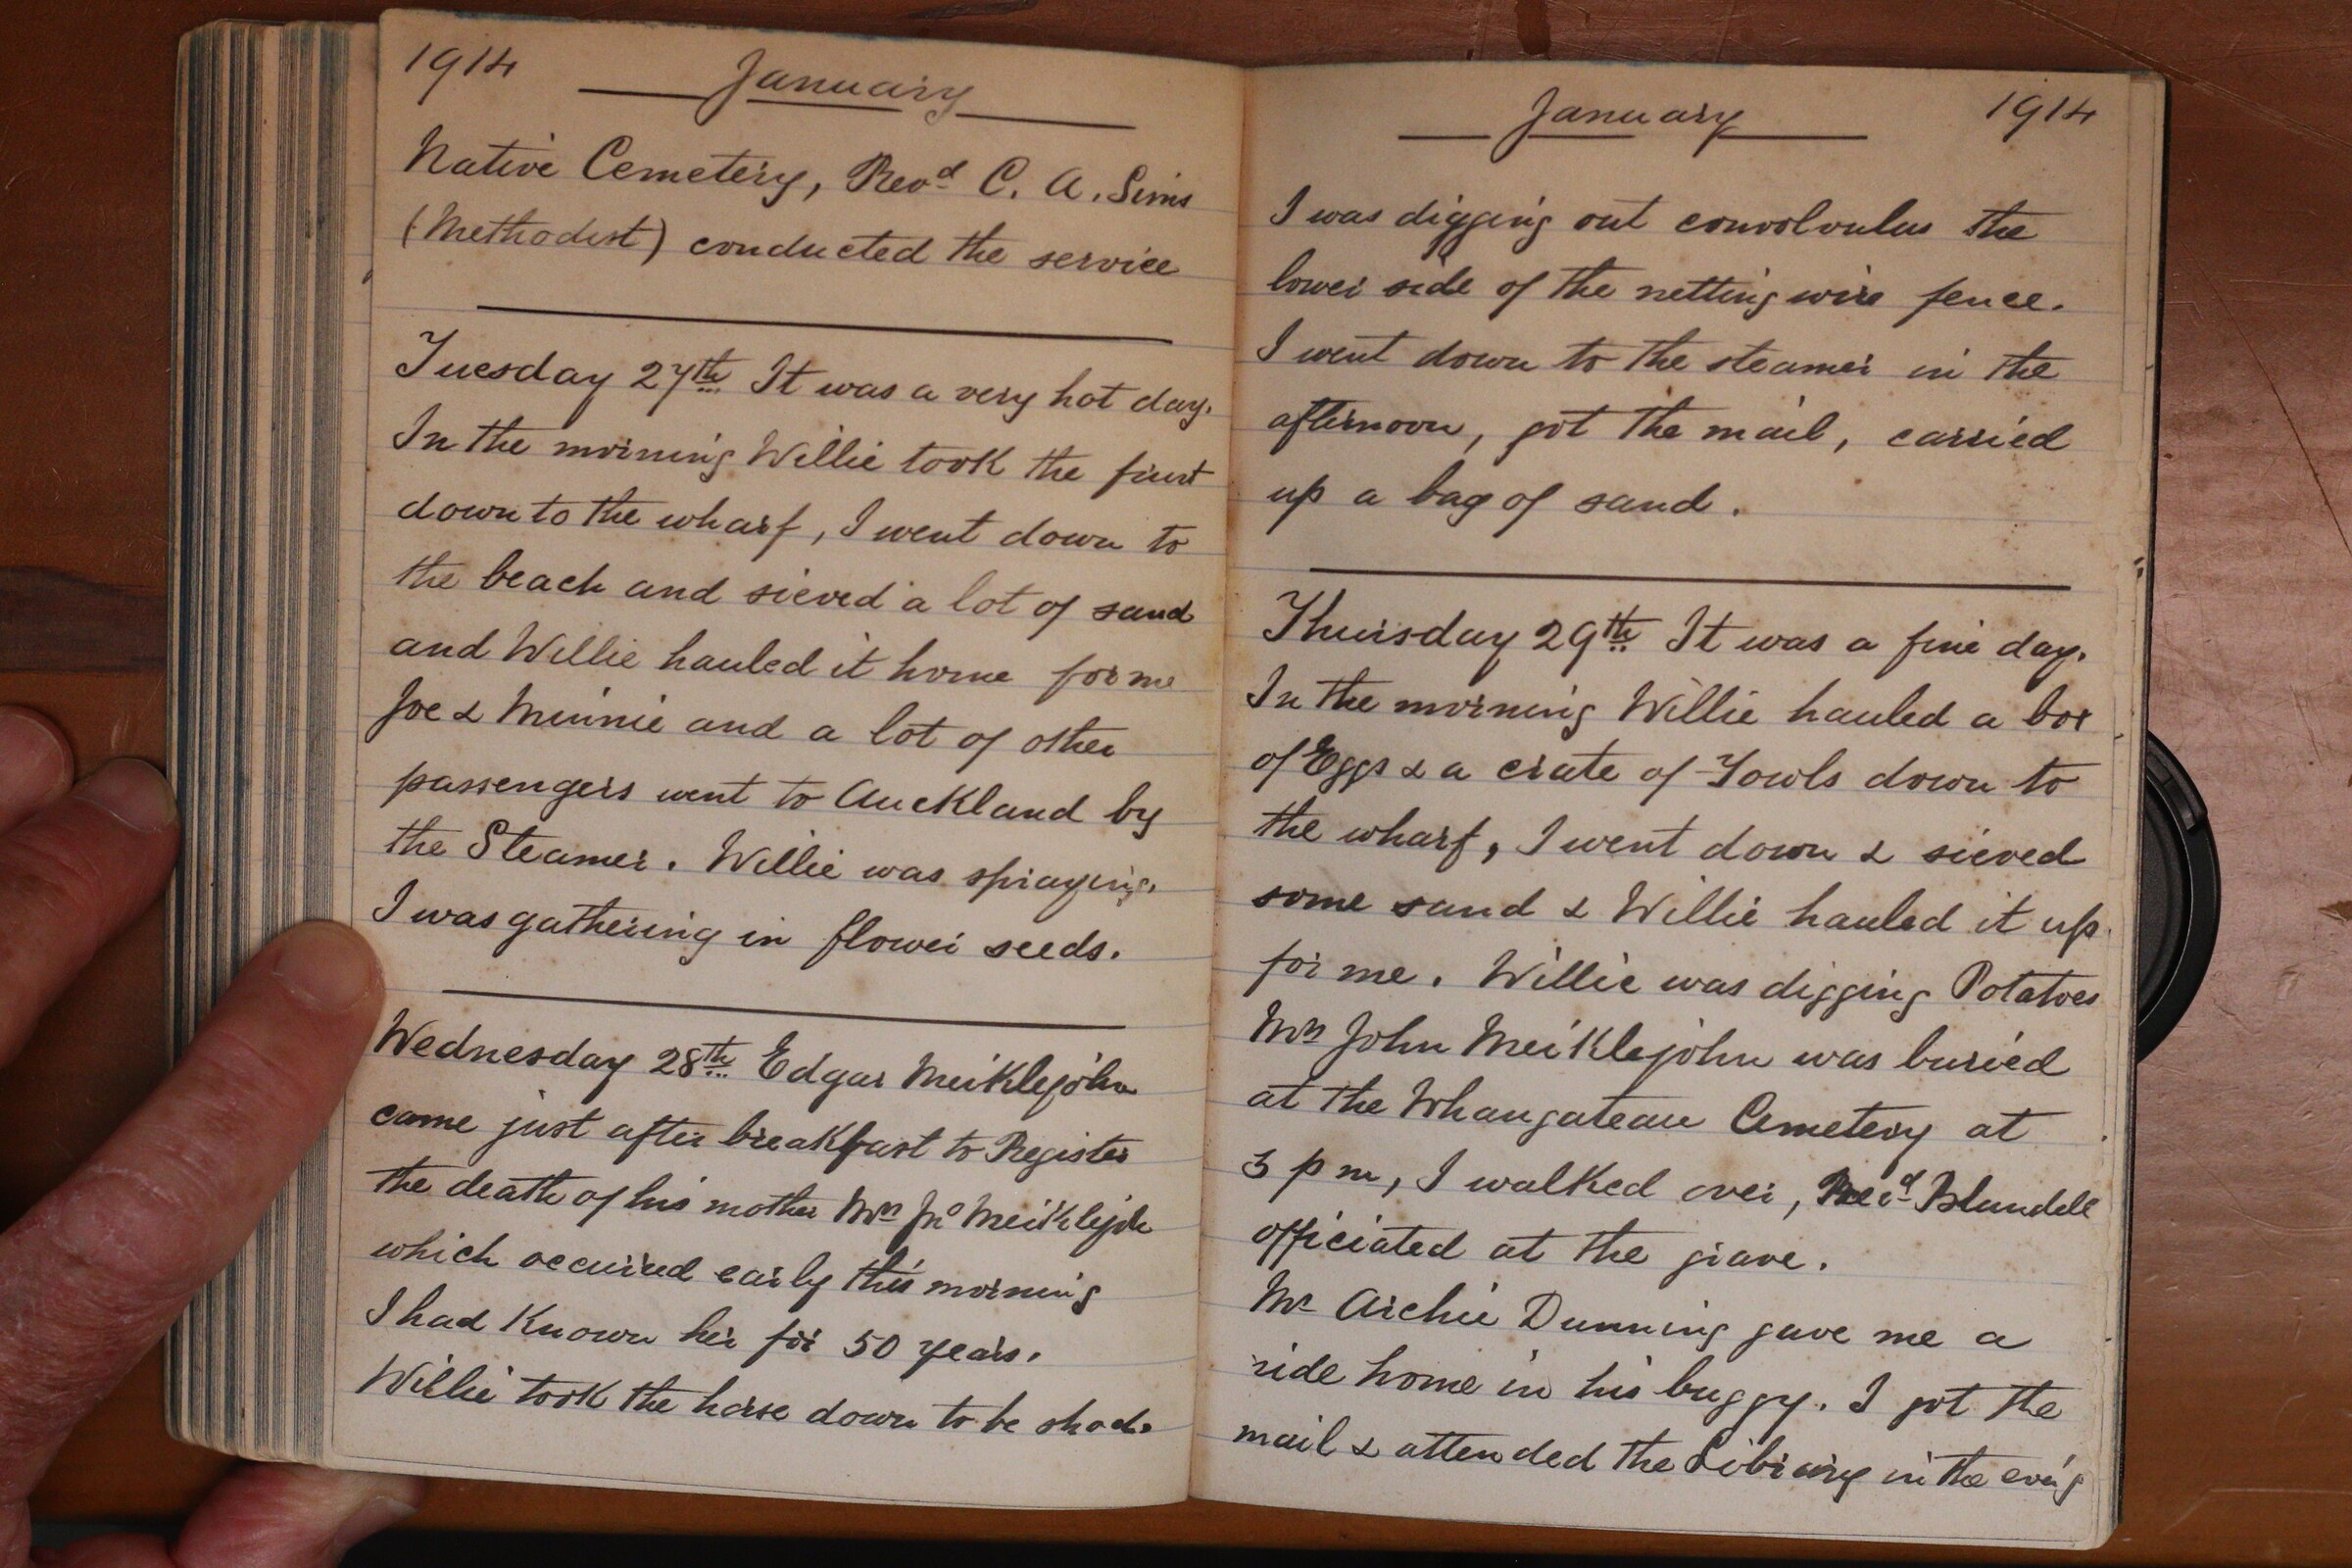 1914
January
Native Cemetery, Revd C. A. Sims
(Methodist) conducted the service
Tuesday 27th It was a very hot day.
In the morning Willie took the fruit
down to the wharf, I went down to
the beach and sieved a lot of sand
and Willie hauled it home for me
Joe & Minnie and a lot of other
passengers went to Auckland by
the Steamer. Willie was spraying.
I was gathering in flower seeds.
Wednesday 28th Edgar Meiklejohn
came just after breakfast to Register
the death of his mother Mrs Jno Meiklejohn
which occurred early this morning
I had Known her for 50 years.
Willie took the horse down to be shod.
January
1914
I was digging out convolvulus the
lower side of the netting wire fence.
I went down to the steamer in the
afternoon, got the mail, carried
up a bag of sand.
Thursday 29th It was a fine day.
In the morning Willie hauled a box
of Eggs & a crate of Fowls down to
the wharf, I went down & sieved
some sand & Willie hauled it up
for me. Willie was digging Potatoes
Mrs John Meiklejohn was buried
at the Whangateau Cemetery at
3 pm, I walked over, Revd Blundell
officiated at the grave.
Mr Archie Dunning gave me a
ride home in his buggy. I got the
mail & attended the Library in the eve'g